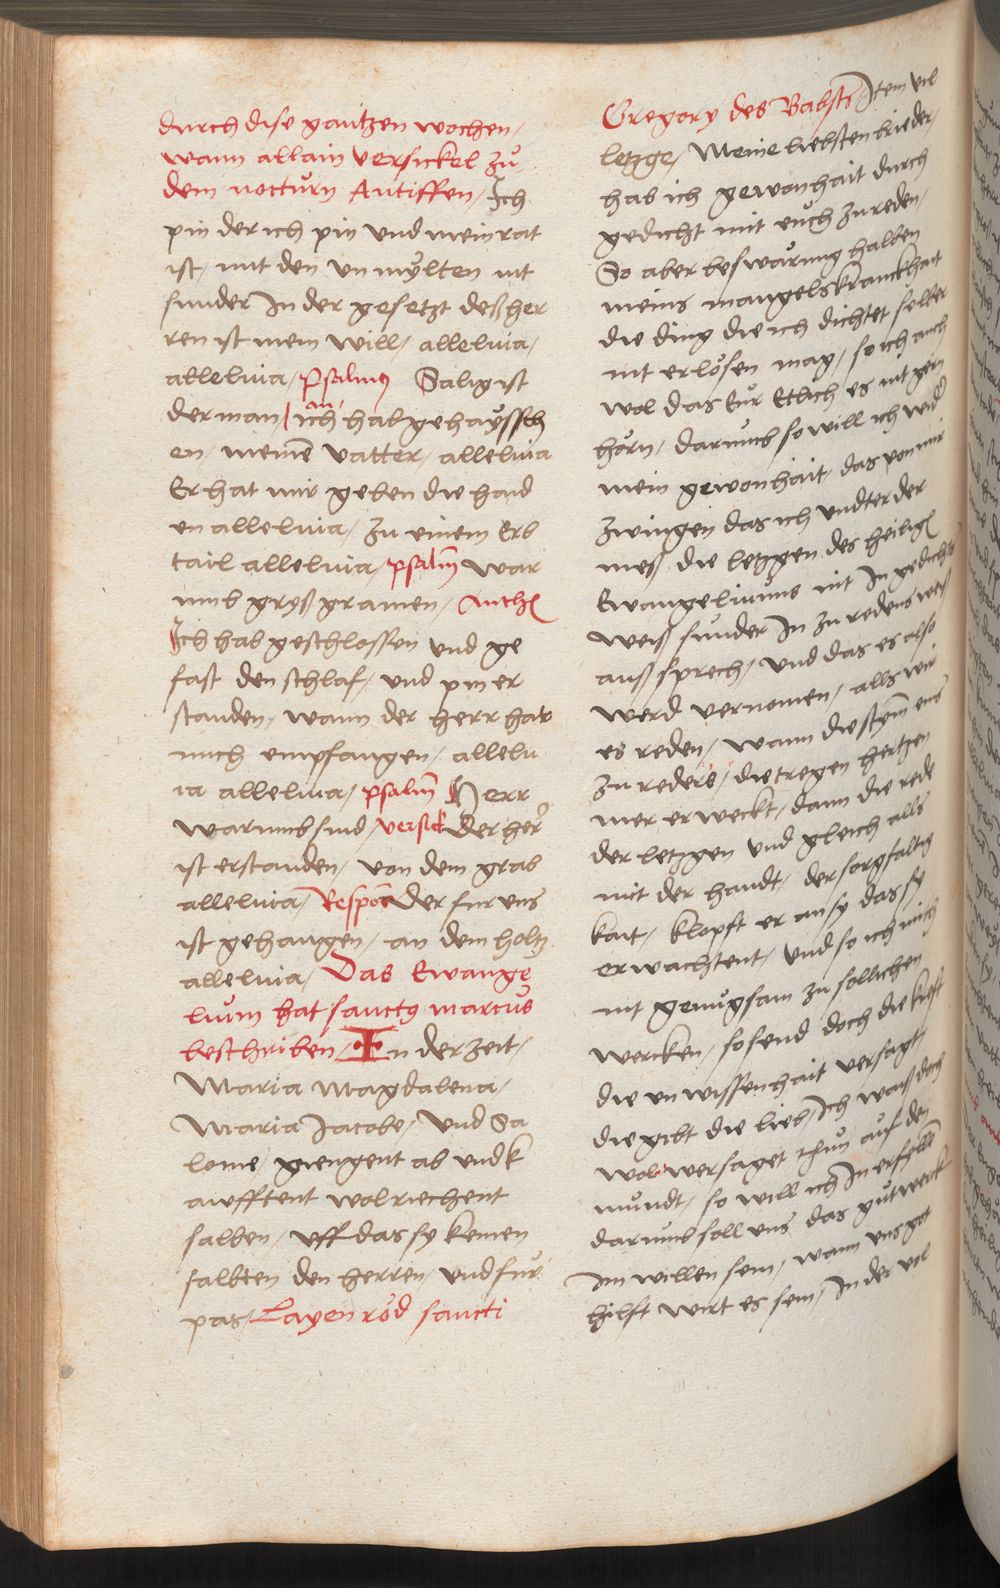 durch dise gantzen wochen,
wann allain versickel zů
dem nocturn Antiffen, Ich
pin der ich pin und mein rat
ist, mit den un mÿlten nit
sunder In der gesetzt deß her
ren ist mein will, alleluia,
alleluia, Psalmus Salig ist
der man, an ich hab gehaÿssch
en, meinē vatter, alleluia
Er hat mir geben die haid
en alleluia, zu einem Erb
tail alleluia, psalm̄ war
umb gryß gramen, Anthꝭ
Ich hab geschlossen und ge
fast den schlaf, und pin er
standen, wann der herr hat
mich empfangen, allelu
ia alleluia, psalm̄ Herr
warumb sind, versic̄k Der her̄
ist erstanden, von dem grab
alleluia, Respoñ Der fur uns
ist gehangen, an dem holtz
alleluia, Das Ewange
lium hat sanctꝯ marcus
beschriben, In der zeit,
Maria Magdalena,
Maria Jacobe, Und Sa
lome, giengent ab und k
aufftent wolriechent
salben, uff das sy kemen
salbten den herren, und fur
pas, Layen rod sancti
Gregory des Babsts Item vil
letzge, Meine liebsten brieder,
hab ich gewonhait durch
gedicht mit euch zu reden,
So aber beswärung halben
meins mangels kranckhait
die ding die ich dichtet selber
nit erlösen mag, so ich auch
wol das Eur Etlich es nit gern
hörn, darumb so will ich wid̄
mein gewonhait, das von mir
zwingen das ich undter der
meß die letzgen des heiligꝭ
Ewangeliums nit In gedichts
weiß sunder In zu redens weiß
auß sprech, und das es also
werd vernomen, alls wir
es reden, wann die stym̄ eins
zu reders, die tregen hertzen
mer erweckt, dann die rede
der letzgen und gleich alls
mit der handt, der sorgfaltig
kait, klopft er an sy das sy
erwachtent, und so ich mich
nit genůgsam zu sollichen
wercken, so send doch die kreft
die unwissenhait versagt
die gibt die lieb, Ich waiß doch
wol wer saget thun auf den
mundt, so will ich In erfellē
darumb soll uns das gut werck
im willen sein, wann uns got
hilft wirt es sein, In der vil